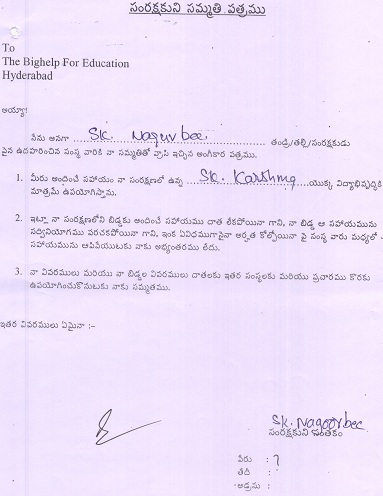 సంరక్షకుని సమ్మతి పత్రము
To
The Bighelp For Education
Hyderabad
అయ్యా!
నేను అనగా SK. Nagurbee తండ్రి/తల్లి/సంరక్షకుడు
పైన ఉదహరించిన సంస్థ వారికి నా సమ్మతితో వ్రాసి ఇచ్చిన అంగీకార పత్రము.
1. మీరు అందించే సహాయం నా సంరక్షణలో ఉన్న SK. యొక్క విద్యాభివృద్ధికి
మాత్రమే ఉపయోగిస్తాను.
2. ఇట్లా నా సంరక్షణలోని బిడ్డకు అందించే సహాయము దాత లేకపోయినా గాని, నా బిడ్డ ఆ సహాయమును
సద్వినియోగము పరచకపోయినా గాని, ఇంక ఏవిధముగానైనా అర్హత కోల్పోయినా పై సంస్థ వారు మధ్యలో -
సహాయమును ఆపివేయుటకు నాకు అభ్యంతరము లేదు.
3. నా వివరములు మరియు నా బిడ్డల వివరములు దాతలకు ఇతర సంస్థలకు మరియు ప్రచారము కొరకు
ఉపయోగించుకొనుటకు నాకు సమ్మతము.
ఇతర వివరములు ఏమైనా :-
SK. Nagoorbee
సంరక్షకుని సంతకం
పేరు :
తేది :
అడ్రసు :